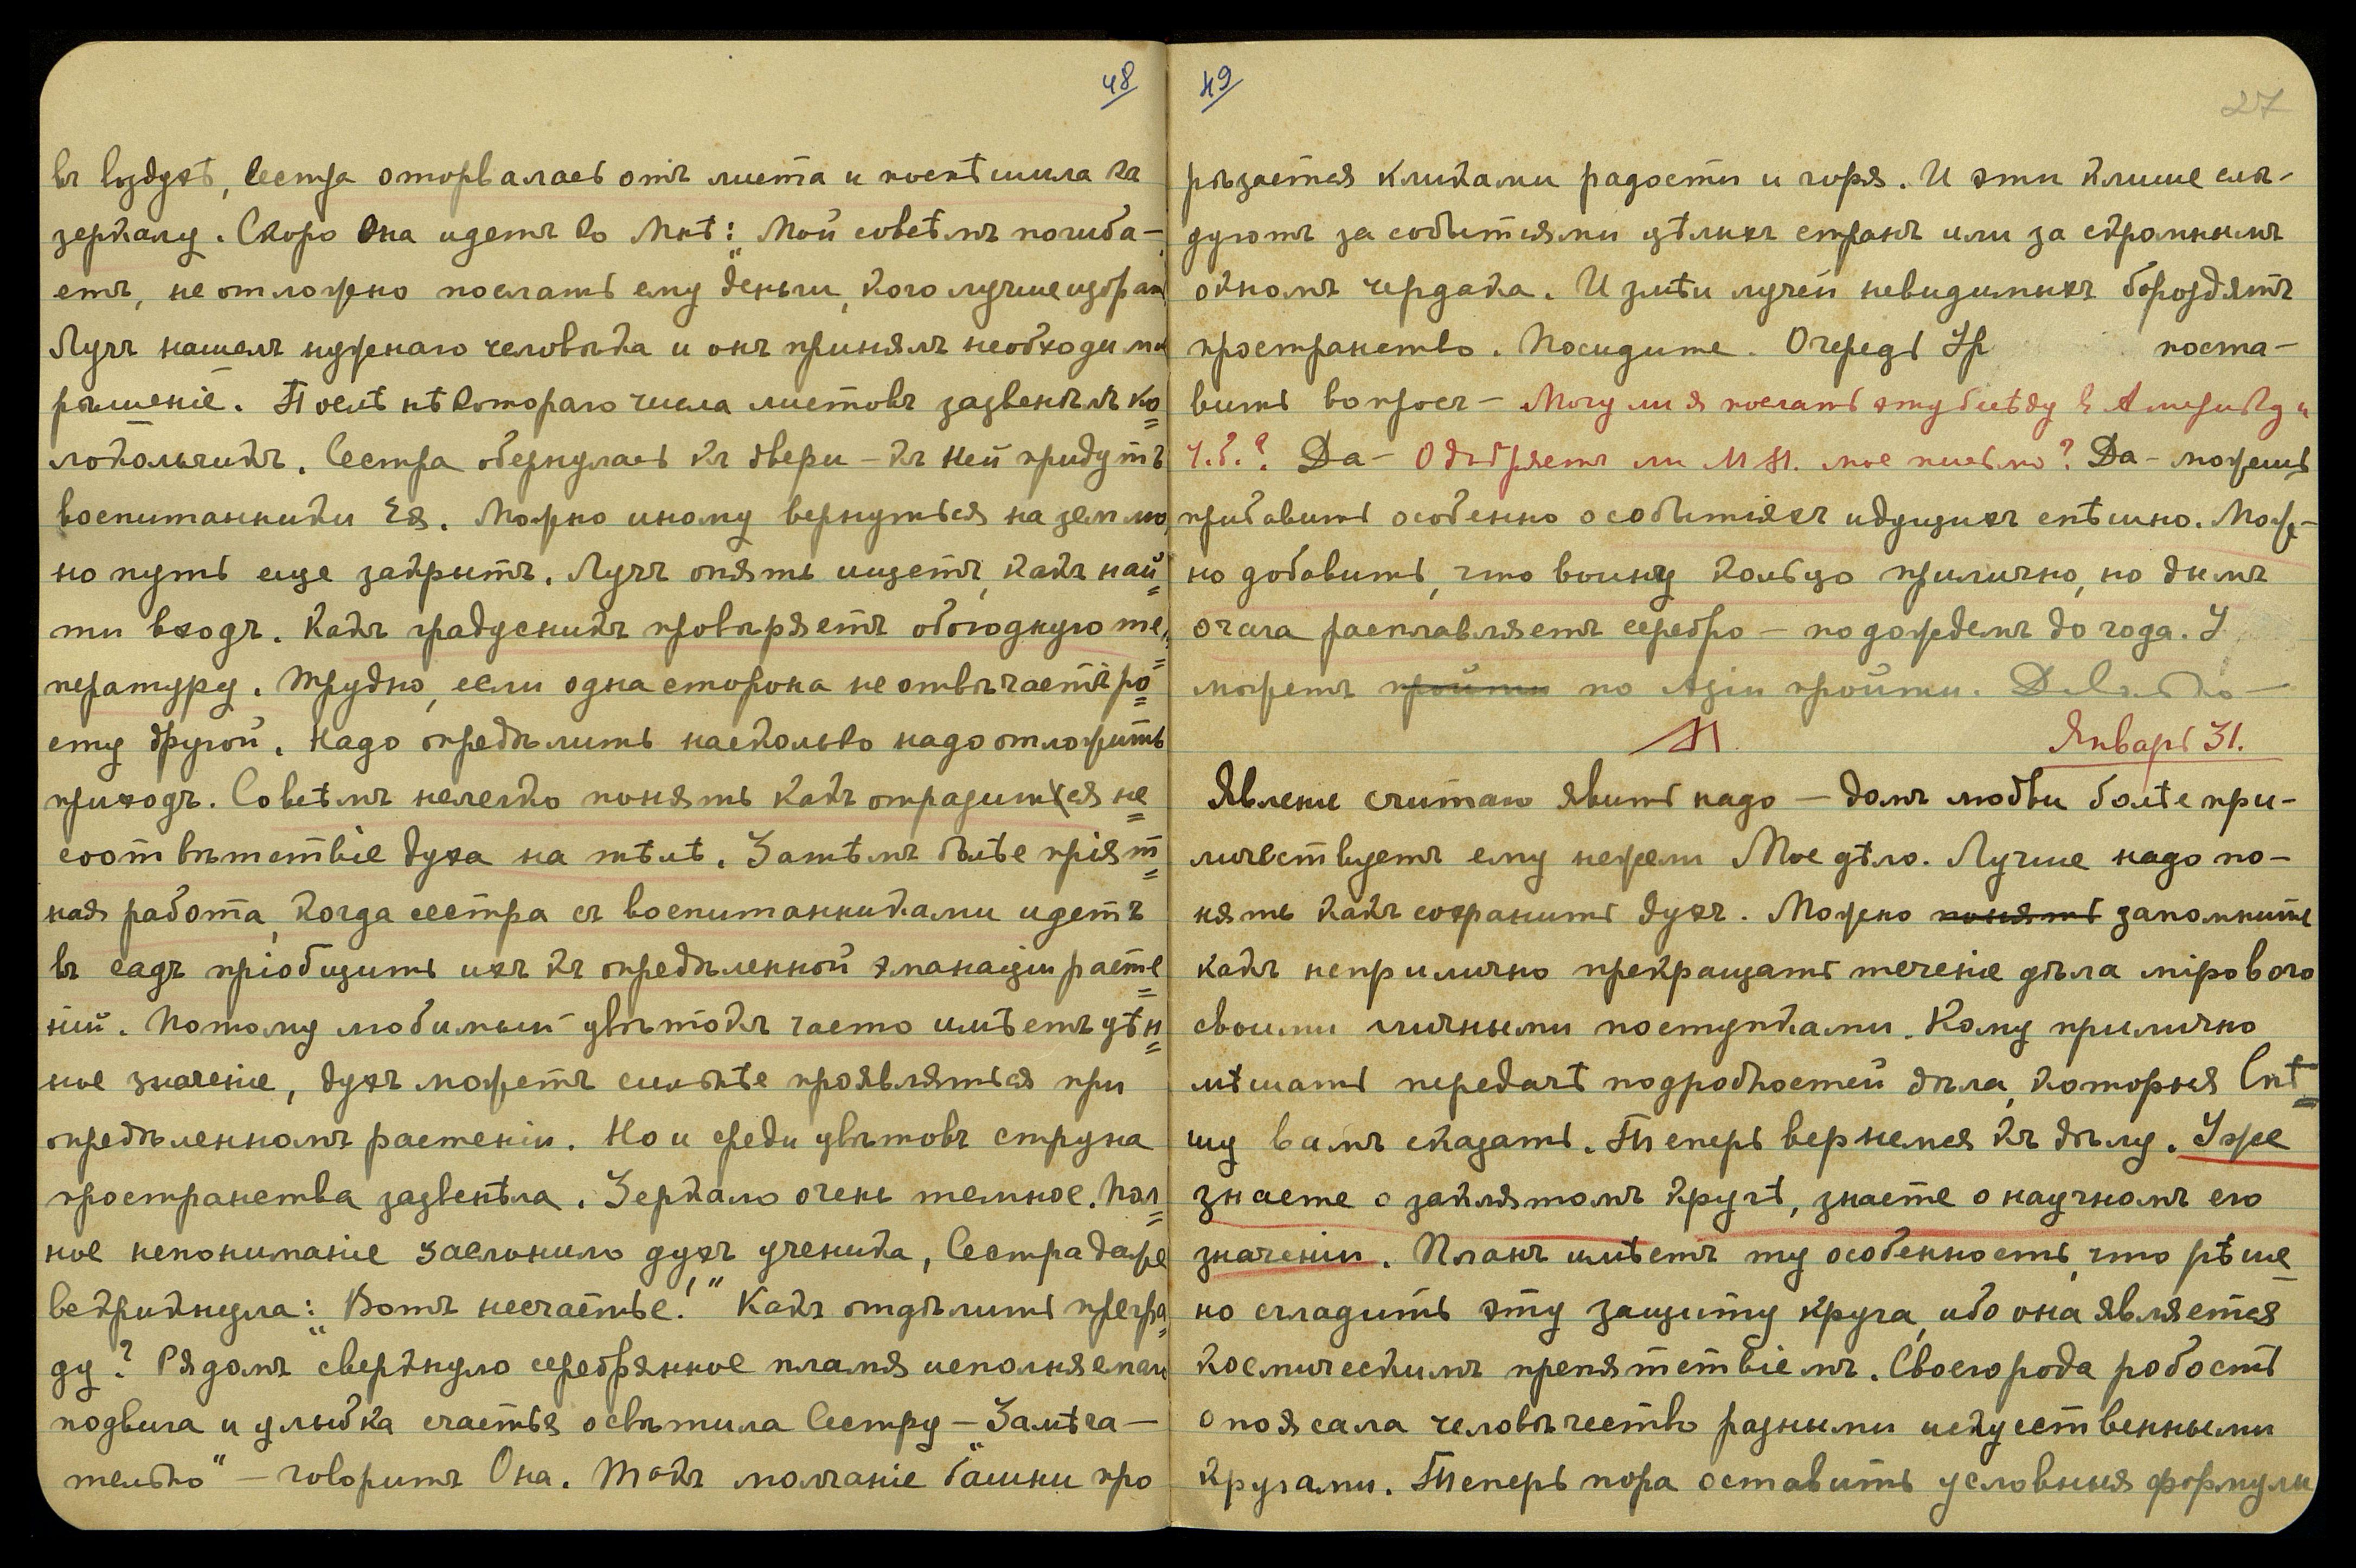 48
въ воздухѣ, Сестра оторвалась отъ листа и поспѣшила къ
зеркалу. Скоро Она идетъ ко Мнѣ: „Мой совѣтъ погиба-
етъ, неотложно послать ему деньги, кого лучше избрать"
Лучъ нашелъ нужнаго человѣка и онъ принялъ необходимое
рѣшеніе. Послѣ нѣкотораго числа листовъ зазвенѣлъ ко=
локольчикъ. Сестра обернулась къ двери – къ ней придутъ
воспитанники Ея. Можно иному вернуться на землю,
но путь еще закрытъ. Лучъ опять ищетъ, какъ най=
ти входъ. Какъ градусникъ провѣряетъ обоюдную тем=
пературу. Трудно, если одна сторона не отвѣчаетъ ро=
сту другой. Надо опредѣлить насколько надо отложить
приходъ. Совѣтъ нелегко понять какъ отразится не=
соотвѣтствіе духа на тѣлѣ. Затѣмъ болѣе пріят=
ная работа, когда сестра съ воспитанниками идетъ
въ садъ пріобщить ихъ къ опредѣленной эманаціи расте=
ній. Потому любимый цвѣтокъ часто имѣетъ цѣн=
ное значеніе, духъ можетъ сильнѣе проявляться при
опредѣленномъ растеніи. Но и среди цвѣтовъ струна
пространства зазвенѣла. Зеркало очень темное. Пол=
ное непониманіе заслонило духъ ученика, Сестра даже
вскрикнула: „Вотъ несчастье!" Какъ отдѣлить прегра=
ду? Рядомъ сверкнуло серебрянное пламя исполняемаго
подвига и улыбка счастья освѣтила Сестру – „Замѣча-
тельно" – говоритъ Она. Такъ молчаніе башни про
49
27
рѣзается кликами радости и горя. И эти клише слѣ-
дуютъ за событіями цѣлыхъ странъ или за скромнымъ
окномъ чердака. И змѣи лучей невидимыхъ бороздятъ
пространство. Посидите. Очередь Ур поста-
вить вопросъ – Могу ли я послать эту бесѣду в Америку и
Ч.б.? Да – Одобряетъ ли М М. мое письмо? Да – можешь
прибавить особенно о событіяхъ идущихъ спѣшно. Мож-
но добавить, что воину кольцо прилично, но дымъ
очага расплавляетъ серебро – подождемъ до года. У
можетъ пройти по Азіи пройти. Довольно –
М Январь 31.
Явленье считаю явить надо – домъ любви болѣе при-
личествуетъ ему нежели Мое дѣло. Лучше надо по-
нять какъ сохранить духъ. Можно понять запомнить
какъ неприлично прекращать теченіе дѣла мірового
своими личными поступками. Кому прилично
мѣшать передачѣ подробностей дѣла, которыя Спѣ=
шу вамъ сказать. Теперь вернемся къ дѣлу. Уже
знаете о заклятомъ кругѣ, знаете о научномъ его
значеніи. Планъ имѣетъ ту особенность, что рѣше
но сгладить эту защиту круга, ибо она является
космическимъ препятствіемъ. Своего рода робость
опоясала человѣчество разными искусственными
кругами. Теперь пора оставить условныя формулы